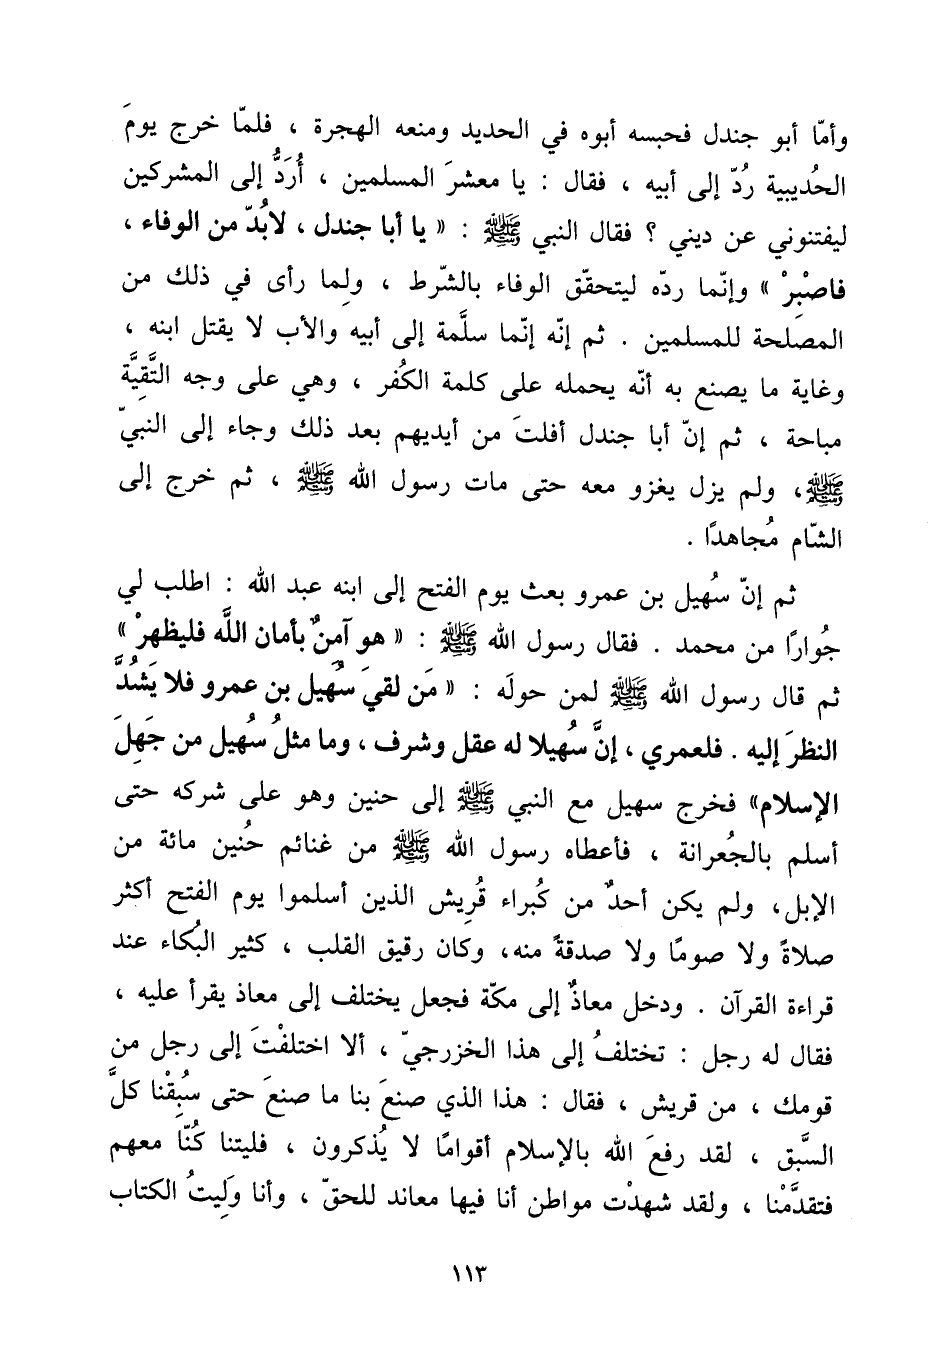 وأمّا أبو جندل فحبسه أبوه في الحديد ومنعه الهجرة ، فلمّا خرج يومَ
الحُديبية رُدّ إلى أبيه ، فقال : يا معشرَ المسلمين ، أُرَدُّ إلى المشركين
ليفتنوني عن ديني ؟ فقال النبي ﷺ : « يا أبا جندل ، لابُدّ من الوفاء ،
فاصْبِرْ » وإنّما ردّه ليتحقّق الوفاء بالشّرط ، ولِما رأى في ذلك من
المصلحة للمسلمين . ثم إنّه إنّما سلَّمة إلى أبيه والأب لا يقتل ابنه ،
وغاية ما يصنع به أنّه يحمله على كلمة الكُفر ، وهي على وجه التَّقِيَّة
مباحة ، ثم إنّ أبا جندل أفلتَ من أيديهم بعد ذلك وجاء إلى النبيّ
ﷺ، ولم يزل يغزو معه حتى مات رسول الله ﷺ ، ثم خرج إلى
الشّام مُجاهدًا .
ثم إنّ سُهيل بن عمرو بعث يوم الفتح إلى ابنه عبد الله : اطلب لي
جُوارًا من محمد . فقال رسول الله ﷺ : « هو آمِنٌ بأمان اللَّه فليظهرْ »
ثم قال رسول الله ﷺ لمن حولَه : « مَن لقيَ سُهَيل بن عمرو فلا يَشُدَّ
النظرَ إليه . فلعمري ، إنَّ سُهيلا له عقل وشرف ، وما مثلُ سُهيل من جَهِلَ
الإسلام» فخرج سهيل مع النبي ﷺ إلى حنين وهو على شركه حتى
أسلم بالجُعرانة ، فأعطاه رسول الله ﷺ من غنائم حُنين مائة من
الإبل، ولم يكن أحدٌ من كُبراء قُريش الذين أسلموا يوم الفتح أكثر
صلاةً ولا صومًا ولا صدقةً منه، وكان رقيق القلب ، كثير البُكاء عند
قراءة القرآن . ودخل معاذٌ إلى مكّة فجعل يختلف إلى معاذ يقرأ عليه ،
فقال له رجل : تختلفُ إلى هذا الخزرجيّ ، ألا اختلفْتَ إلى رجل من
قومك ، من قريش ، فقال : هذا الذي صنعَ بنا ما صنعَ حتى سُبِقْنا كلَّ
السَّبق ، لقد رفعَ الله بالإسلام أقوامًا لا يُذكرون ، فليتنا كُنّا معهم
فتقدَّمْنا ، ولقد شهدْت مواطن أنا فيها معاند للحقّ ، وأنا وَلِيتُ الكتاب
١١٣